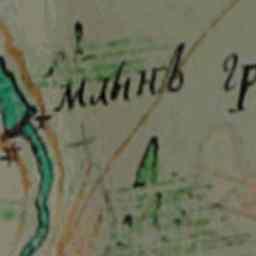 млинъ гр